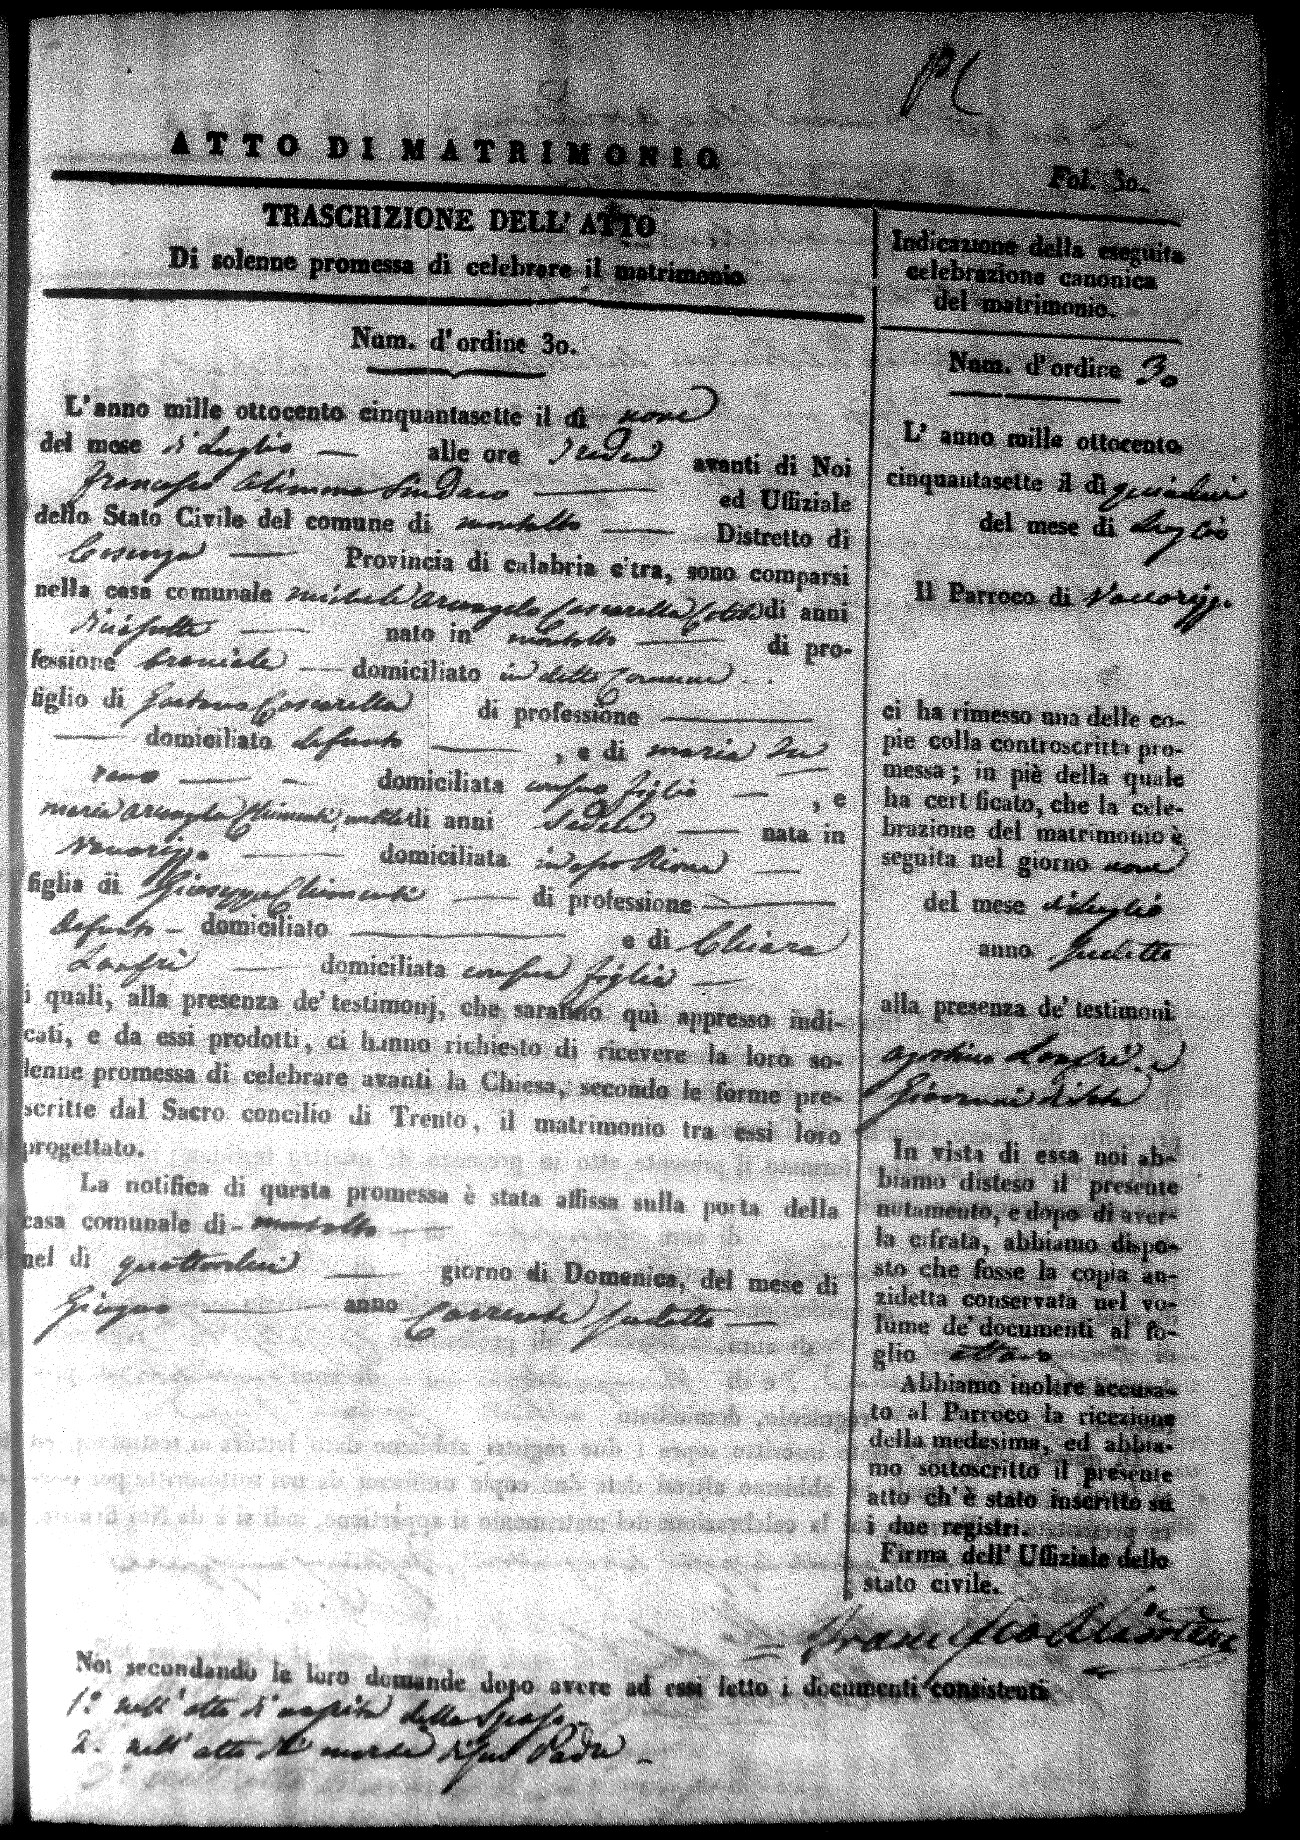 ATTO DI MATRIMONIO
Fol. 30.
TRASCRIZIONE DELL' ATTO
Di solenne promessa di celebrare il matrimonio
Num. d'ordine 30.
L'anno mille ottocento cinquantasette il dì nove
del mese di Luglio alle ore avanti di Noi
Francesco Alimena Sindaco ed Uffiziale
dello Stato Civile del comune di Montalto Distretto di
Cosenza Provincia di calabria c'tra, sono comparsi
nella casa comunale Michele Arcangelo Coscarella di anni
nato in Montalto di pro-
fessione bracciale domiciliato in detto Comune
figlio di Gaetano Coscarella di professione
domiciliato defunto , e di Maria
domiciliata con suo figlio , e
Maria Arcangela Chimenti, nubile di anni Sedici nata in
Vaccarizzo domiciliata in esso Rione
figlia di Giuseppe Chimenti di professione
defunto domiciliato e di Chiara
Lanfri domiciliata con sua figlia
i quali, alla presenza de' testimonj, che saranno quì appresso indi-
cati, e da essi prodotti, ci hanno richiesto di ricevere la loro so-
lenne promessa di celebrare avanti la Chiesa, secondo le forme pre-
scritte dal Sacro concilio di Trento, il matrimonio tra essi loro
progettato.
La notifica di questa promessa è stata affissa sulla porta della
casa comunale di Montalto
nel dì quattordici giorno di Domenica, del mese di
Giugno anno Corrente sudetto
Noi secondando le loro domande dopo avere ad essi letto i documenti consistenti
1.° nell'atto di nascita della Sposa
2. nell'atto di morte di suo Padre
Indicazione della eseguita
celebrazione canonica
del matrimonio.
Num. d'ordine 30
L' anno mille ottocento
cinquantasette il dì quindici
del mese di Luglio
Il Parroco di Vaccarizzo
ci ha rimesso una delle co-
pie colla controscritta pro-
messa; in piè della quale
ha cert ficato, che la cele-
brazione del matrimonio è
seguita nel giorno nove
del mese di Luglio
anno Sudetto
alla presenza de' testimoni
Agostino Lanfri e
Giovanni
In vista di essa noi ab-
biamo disteso il presente
notamento, e dopo di aver-
la cifrata, abbiamo dispo-
sto che fosse la copia an-
zidetta conservata nel vo-
lume de' documenti al fo-
glio ottavo
Abbiamo inoltre accusa-
to al Parroco la ricezione
della medesima, ed abbia-
mo sottoscritto il presente
atto ch' è stato inscritto su
i due registri.
Firma dell' Uffiziale dello
stato civile.
Francesco Alimena